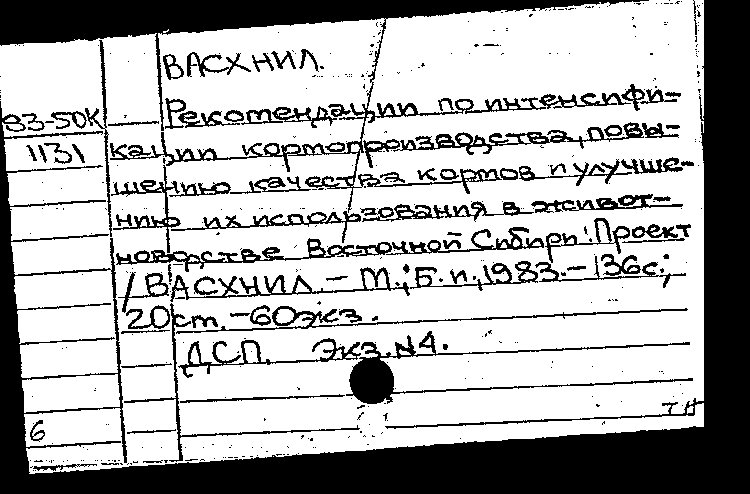 ВАСХНИЛ.
83-50К Рекомендации по интенсифи-
1131 кации кормопроизводства, повы-
шению качества кормов и улучше-
нию их использования в живот-
новодстве Восточной Сибири: Проект
/ ВАСХНИЛ. - М.; Б.и., 1983. - 136с.;
20 см. - 60 экз.
ДСП. Экз. N4.
6